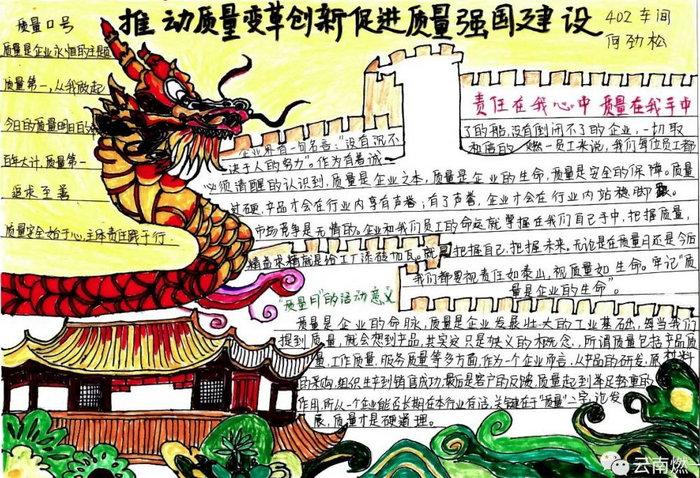 推动质量变革创新促进质量强国建设
402车间
何劲松
质量口号
质量是企业永恒的主题
质量第一,从我做起
今日的质量明日的
百年大计,质量第一
追求至善
质量安全始于心,主体责任践于行
责任在我心中 质量在我手中
企业界有一句名言:“没有沉不
了的船,没有倒闭不了的企业,一切取
决于人的努力”。作为有着诚
和信的 燃一员工来说,我们每位员工都
必须清醒的认识到,质量是企业之本,质量是企业的生命,质量是安全的保障。质量
过硬,产品才会在行业内享有声誉,有了声誉,企业才会在行业内站稳脚跟。
市场竞争是无情的。企业和我们员工的命运就掌握在我们自己手中,把握质量,
精益求精就是给工厂添砖加瓦。就是把握自己,把握未来。无论是在质量日还是今后
我们都要视责任如泰山,视质量如生命。牢记“质
量是企业的生命”。
“质量月”的活动意义
质量是企业的命脉,质量是企业发展壮大的工业基础,每当我们
提到质量,就会想到产品,其实这只是狭义的概念,所谓质量包括产品质
量,工作质量,服务质量等多方面,作为一个企业而言,从产品的研发,原材料
的采购,组织生产到销售成功,最后是客户的反馈,质量起到举足轻重的
作用,所以一个企业能否长期在本行业有活,关键在于“质量”二字,论发
展,质量才是硬道理。
云南燃